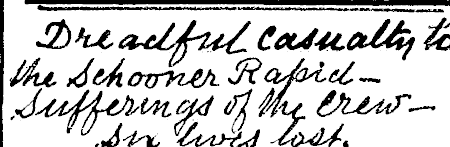 Dreadful casualty to
the Schooner Rapid—
Sufferings of the Crew—
Six lives lost.